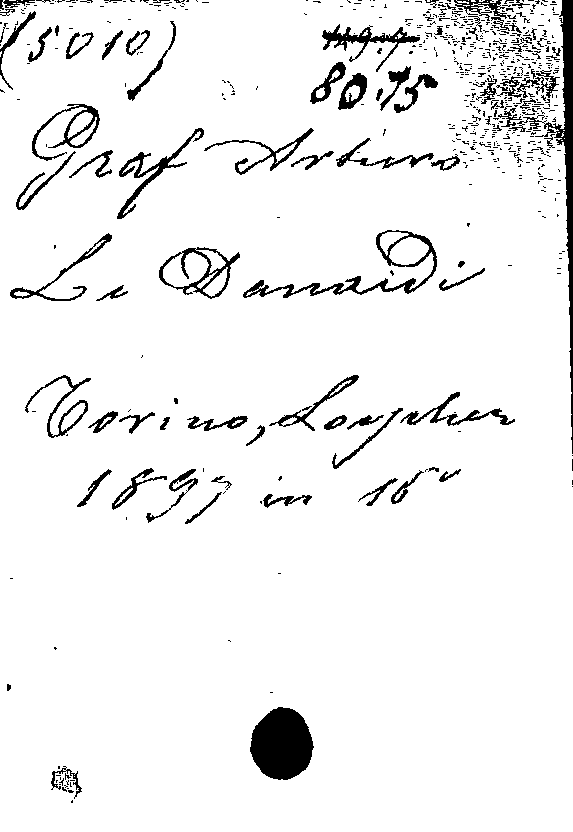 (5010)
80.75
Graf Arturo
Le Danaidi
Torino, Loescher
1897 in 16°